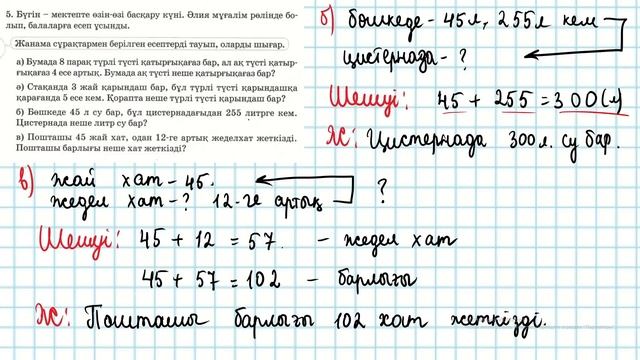 5. Бүгін – мектепте өзін-өзі басқару күні. Әлия мұғалім рөлінде бо-
лып, балаларға есеп ұсынды.
Жанама сұрақтармен берілген есептерді тауып, оларды шығар.
а) Бумада 8 парақ түрлі түсті қатырғықағаз бар, ал ақ түсті қатыр-
ғықағаз 4 есе артық. Бумада ақ түсті неше қатырғықағаз бар?
ә) Стақанда 3 жай қарындаш бар, бұл түрлі түсті қарындашқа
қарағанда 5 есе кем. Қорапта неше түрлі түсті қарындаш бар?
б) Бөшкеде 45 л су бар, бұл цистернадағыдан 255 литрге кем.
Цистернада неше литр су бар?
в) Пошташы 45 жай хат, одан 12-ге артық жеделхат жеткізді.
Пошташы барлығы неше хат жеткізді?
б) бөшкеде - 45 л, 255 л кем
цистернада - ?
Шешуі: 45 + 255 = 300 (л)
Ж: Цистернада 300 л. су бар.
в) жай хат - 45.
жедел хат - ? 12-ге артық ?
Шешуі: 45 + 12 = 57. - жедел хат
45 + 57 = 102 - барлығы
Ж: Пошташы барлығы 102 хат жеткізді.